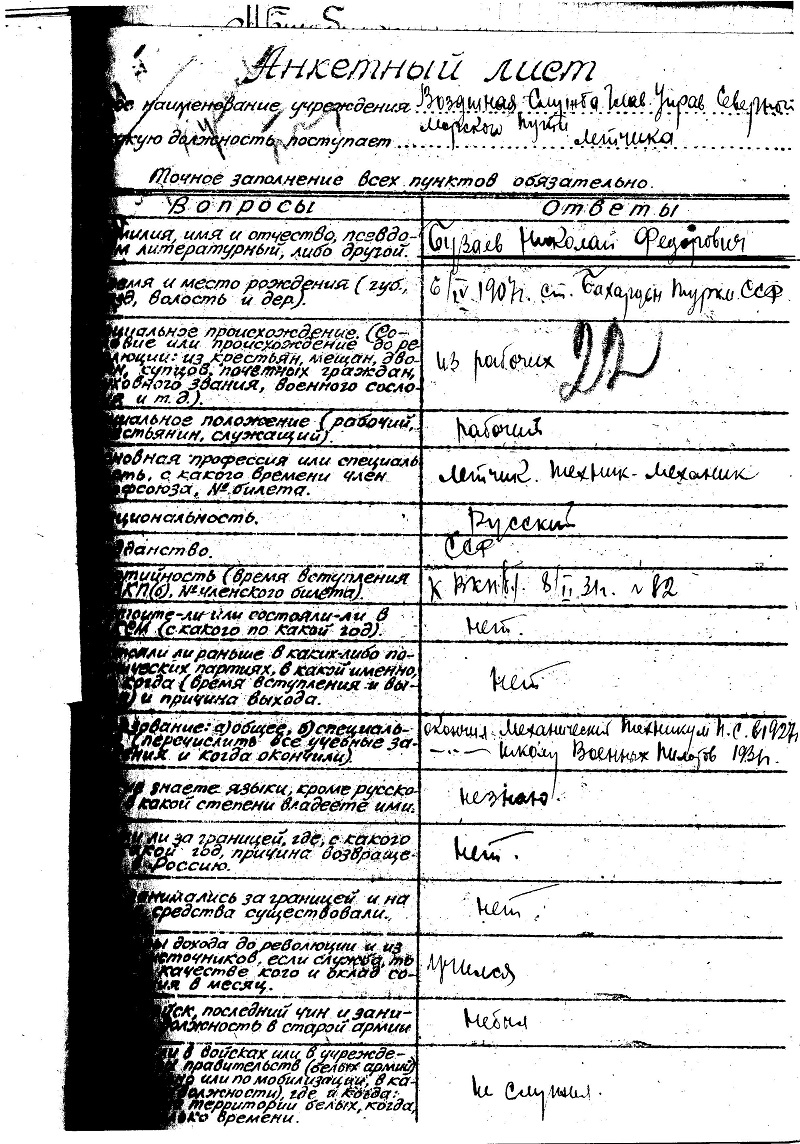 Анкетный лист
наименование учреждения Воздушная Служба Глав. Управ Северного
морского пути
должность поступает летчика
Точное заполнение всех пунктов обязательно.
Вопросы Ответы
милия, имя и отчество, псевдо-
м литературный, либо другой. Бузаев Николай Федорович
емя и место рождения (губ.,
зд, волость и дер.). 6/IV 1907г. ст. Бахарден Туркм. ССР
циальное происхождение. (Со-
овие или происхождение до ре-
люции: из крестьян, мещан, дво-
н, купцов, почетных граждан,
ховного звания, военного сосло-
я и т.д.). из рабочих 22
циальное положение (рабочий,
стьянин, служащий). рабочий
новная профессия или специаль-
ть, с какого времени член
офсоюза, № билета. летчик. техник-механик
циональность. Русский
данство. ССР
тийность (время вступления
КП(б), № членского билета). К ВКП(б). 8/II 31г. № 82
тоите-ли или состояли-ли в
СМ (с какого по какой год). нет.
ояли ли раньше в каких-либо по-
ических партиях, в какой именно,
когда (время вступления и вы-
) и причина выхода. нет
зование: а) общее, б) специаль-
(перечислить все учебные за-
них и когда окончили). окончил Механический Техникум П.С. в 1927г
школу Военных Пилотов 1931г.
знаете языки, кроме русско
в какой степени владеете ими. незнаю.
ли за границей, где, с какого
кой год, причина возвраще-
Россию. нет.
нимались за границей и на
средства существовали. нет.
ы дохода до революции и из
сточников, если служба, то
качестве кого и оклад со-
ия в месяц. учился
йск, последний чин и зани-
должность в старой армии небыл
ли в войсках или в учрежде-
правительств (белых армий)
но или по мобилизации, в ка-
должности), где и когда:
территории белых, когда,
лько времени. не служил.